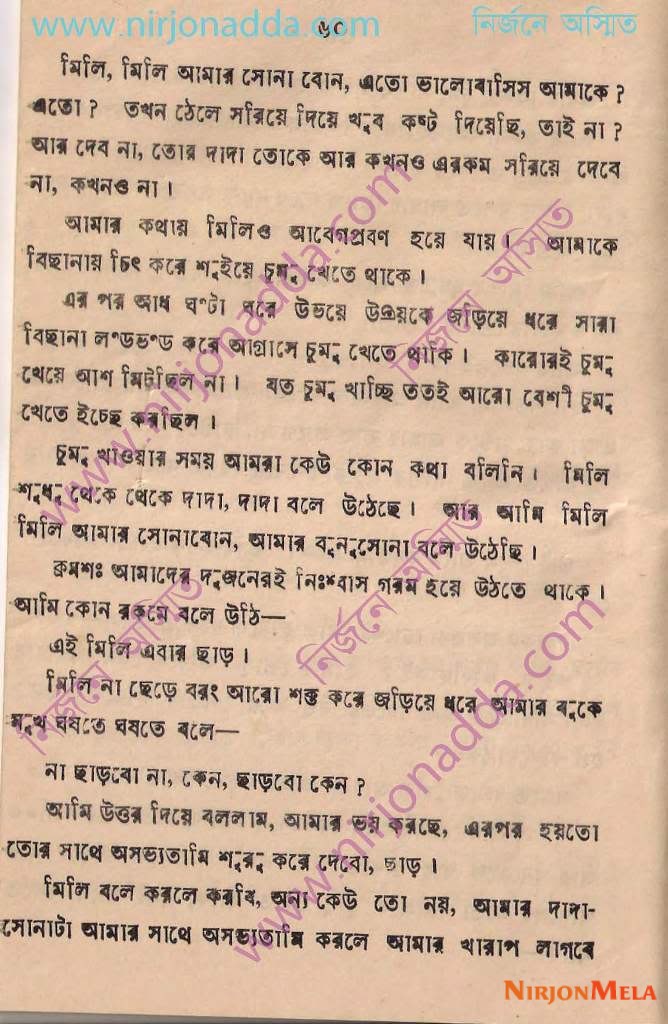 www.nirjonadda.com ৬০ নির্জনে অস্মিত
মিলি, মিলি আমার সোনা বোন, এতো ভালোবাসিস আমাকে ?
এতো ? তখন ঠেলে সরিয়ে দিয়ে খুব কষ্ট দিয়েছি, তাই না ?
আর দেব না, তোর দাদা তোকে আর কখনও এরকম সরিয়ে দেবে
না, কখনও না ।
আমার কথায় মিলিও আবেগপ্রবণ হয়ে যায় । আমাকে
বিছানায় চিৎ করে শুইয়ে চুমু খেতে থাকে ।
এর পর আধ ঘণ্টা ধরে উভয়ে উভয়কে জড়িয়ে ধরে সারা
বিছানা লণ্ডভণ্ড করে আগ্রাসে চুমু খেতে থাকি । কারোরই চুমু
খেয়ে আশ মিটছিল না । যত চুমু খাচ্ছি ততই আরো বেশী চুমু
খেতে ইচ্ছে করছিল ।
চুমু খাওয়ার সময় আমরা কেউ কোন কথা বলিনি । মিলি
শুধু থেকে থেকে দাদা, দাদা বলে উঠেছে । আর আমি মিলি
মিলি আমার সোনাবোন, আমার বুনুসোনা বলে উঠেছি ।
ক্রমশঃ আমাদের দুজনেরই নিঃশ্বাস গরম হয়ে উঠতে থাকে ।
আমি কোন রকমে বলে উঠি—
এই মিলি এবার ছাড় ।
মিলি না ছেড়ে বরং আরো শক্ত করে জড়িয়ে ধরে আমার বুকে
মুখ ঘষতে ঘষতে বলে—
না ছাড়বো না, কেন, ছাড়বো কেন ?
আমি উত্তর দিয়ে বললাম, আমার ভয় করছে, এরপর হয়তো
তোর সাথে অসভ্যতামি শুরু করে দেবো, ছাড় ।
মিলি বলে করলে করবি, অন্য কেউ তো নয়, আমার দাদা-
সোনাটা আমার সাথে অসভ্যতামি করলে আমার খারাপ লাগবে
www.nirjonadda.com
নির্জনে অস্মিত
নির্জনে অস্মিত
নির্জনে অস্মিত
www.nirjonadda.com
NIRJONMELA